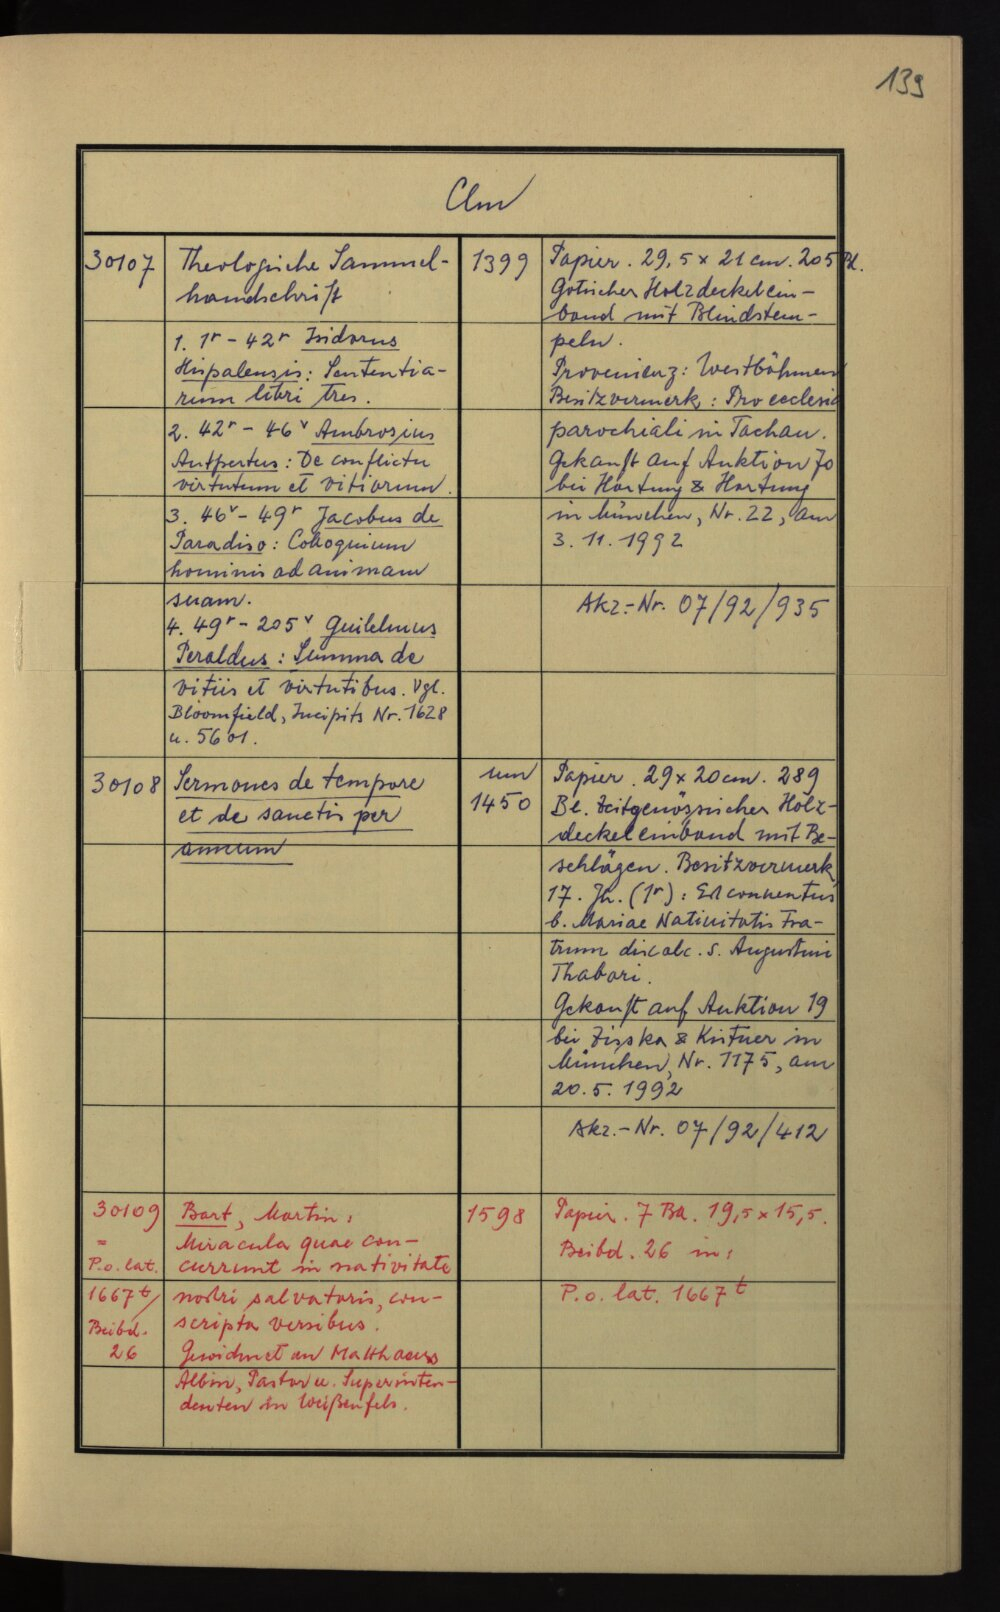 139
Clm
30107
Theologische Sammel-
handschrift
1. 1r - 42r Isidorus
Hispalensis: Sententia-
rum libri tres.
2. 42r - 46v Ambrosius
Autpertus: De conflictu
virtutum et vitiorum.
3. 46v - 49r Jacobus de
Paradiso: Colloquium
hominis ad animam
suam.
4. 49r - 205v Guilelmus
Peraldus: Summa de
vitiis et virtutibus. Vgl.
Bloomfield, Incipits Nr. 1628
u. 5601.
1399
Papier. 29,5 x 21 cm. 205 Bl.
Gotischer Holzdeckelein-
band mit Blindstem-
peln.
Provenienz: Westböhmen
Besitzvermerk: Pro ecclesia
parochiali in Tachau.
Gekauft auf Auktion 70
bei Hartung & Hartung
in München, Nr. 22, am
3. 11. 1992
Akz.-Nr. 07/92/935
30108
Sermones de tempore
et de sanctis per
annum
um
1450
Papier. 29 x 20 cm. 289
Bl. Zeitgenössischer Holz-
deckeleinband mit Be-
schlägen. Besitzvermerk
17. Jh. (1r): Est conventus
b. Mariae Nativitatis Fra-
trum discalc. s. Augustini
Thabori.
Gekauft auf Auktion 19
bei Zisska & Kistner in
München, Nr. 1175, am
20. 5. 1992
Akz.-Nr. 07/92/412
30109
=
P.o. lat.
1667 t/
Beibd.
26
Bart, Martin:
Miracula quae con-
currunt in nativitate
nostri salvatoris, con-
scripta versibus.
Gewidmet an Matthaeus
Albin, Pastor u. Superinten-
denten in Weißenfels.
1598
Papier. 7 Bl. 19,5 x 15,5.
Beibd. 26 in:
P.o. lat. 1667 t